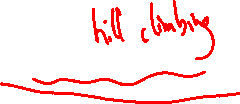 hill climbing